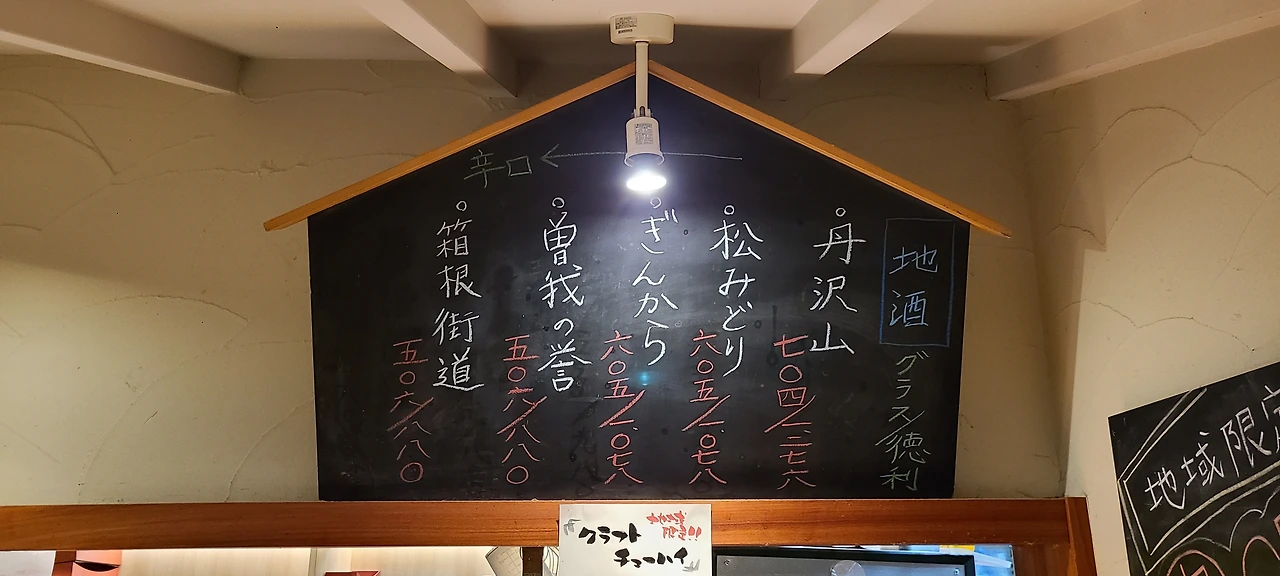 地酒
グラス/徳利
辛口←
○丹沢山
七〇四/一二七六
○松みどり
六〇五/一.〇七八
○ぎんから
六〇五/一.〇七八
○曽我の誉
五〇六/八八〇
○箱根街道
五〇六/八八〇
クラフト
チューハイ
地域限定